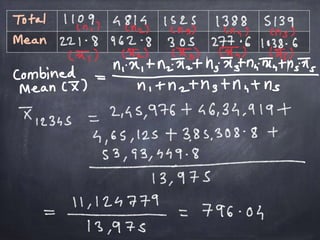 Total 1109 4814 1525 1388 5139
(n₁) (n₂) (n₃) (n₄) (n₅)
Mean 221.8 962.8 305 277.6 1038.6
(x̄₁) (x̄₂) (x̄₃) (x̄₄) (x̄₅)
Combined Mean (x̄) = n₁.x̄₁+n₂.x̄₂+n₃.x̄₃+n₄.x̄₄+n₅.x̄₅
n₁+n₂+n₃+n₄+n₅
x̄₁₂₃₄₅ = 2,45,976 + 46,34,919 +
4,65,125 + 3,85,308.8 +
53,93,449.8
13,975
= 11,124779 / 13,975 = 796.04